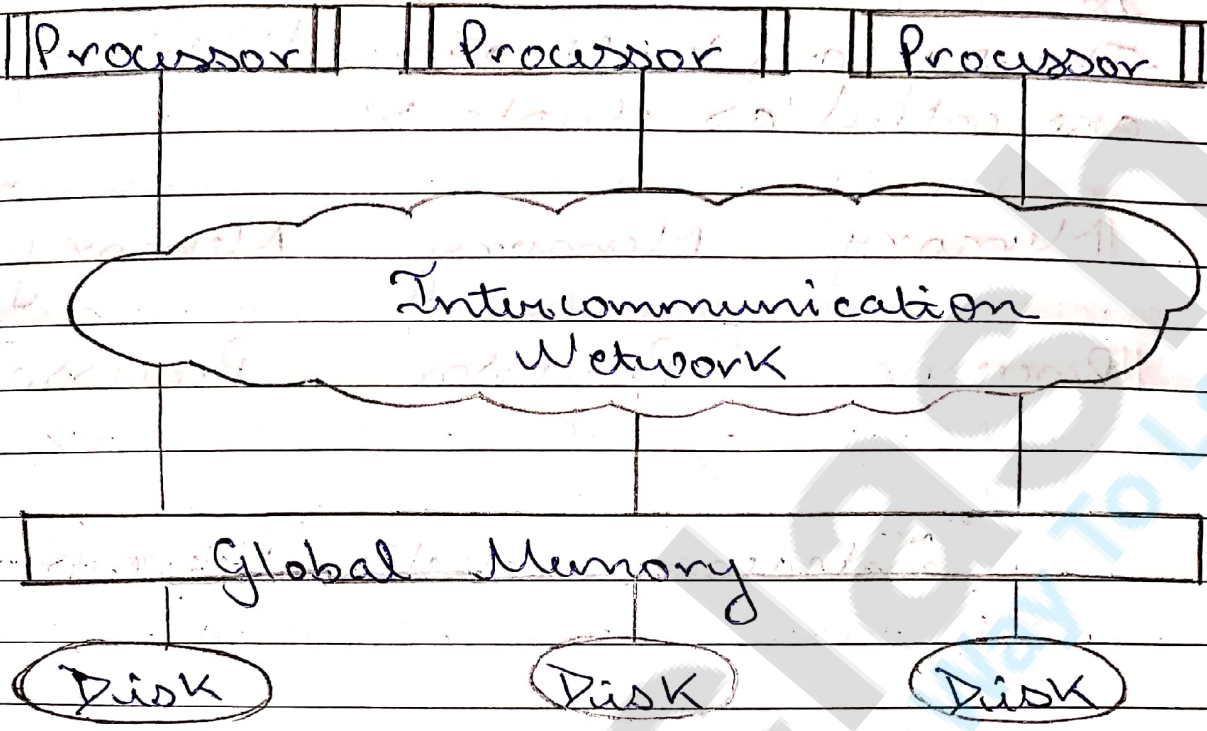 Processor Processor Processor
Intercommunication
Network
Global Memory
Disk Disk Disk
Way To L